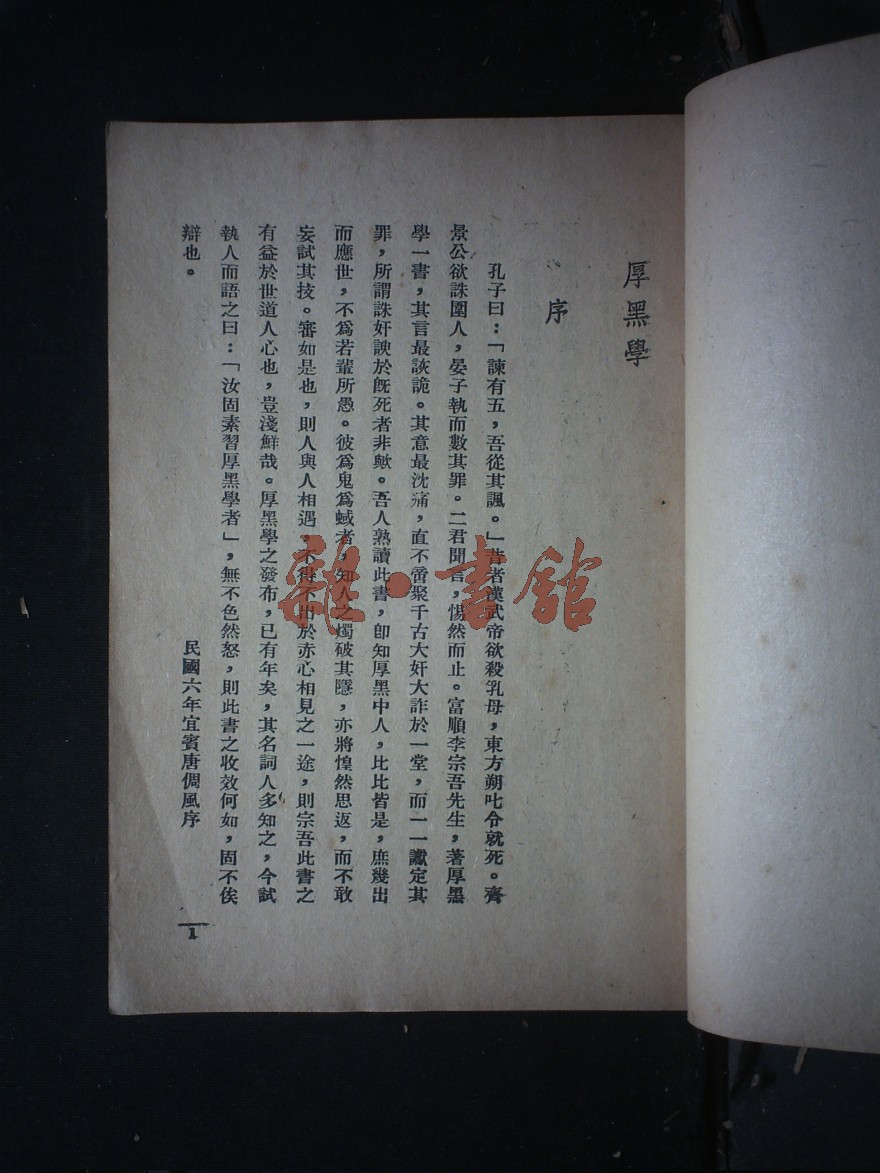 厚黑學
序
孔子曰：「諫有五，吾從其諷。」昔者漢武帝欲殺乳母，東方朔叱令就死。齊
景公欲誅圉人，晏子執而數其罪。二君聞言，惕然而止。富順李宗吾先生，著厚黑
學一書，其言最詼詭。其意最沈痛，直不啻聚千古大奸大詐於一堂，而一一讞定其
罪，所謂誅奸諛於旣死者非歟。吾人熟讀此書，卽知厚黑中人，比比皆是，庶幾出
而應世，不爲若輩所愚。彼爲鬼爲蜮者，知人之燭破其隱，亦將惶然思返，而不敢
妄試其技。審如是也，則人與人相遇，不得不出於赤心相見之一途，則宗吾此書之
有益於世道人心也，豈淺鮮哉。厚黑學之發布，已有年矣，其名詞人多知之，今試
執人而語之曰：「汝固素習厚黑學者」，無不色然怒，則此書之收效何如，固不俟
辯也。
民國六年宜賓唐倜風序
1
雜·書館